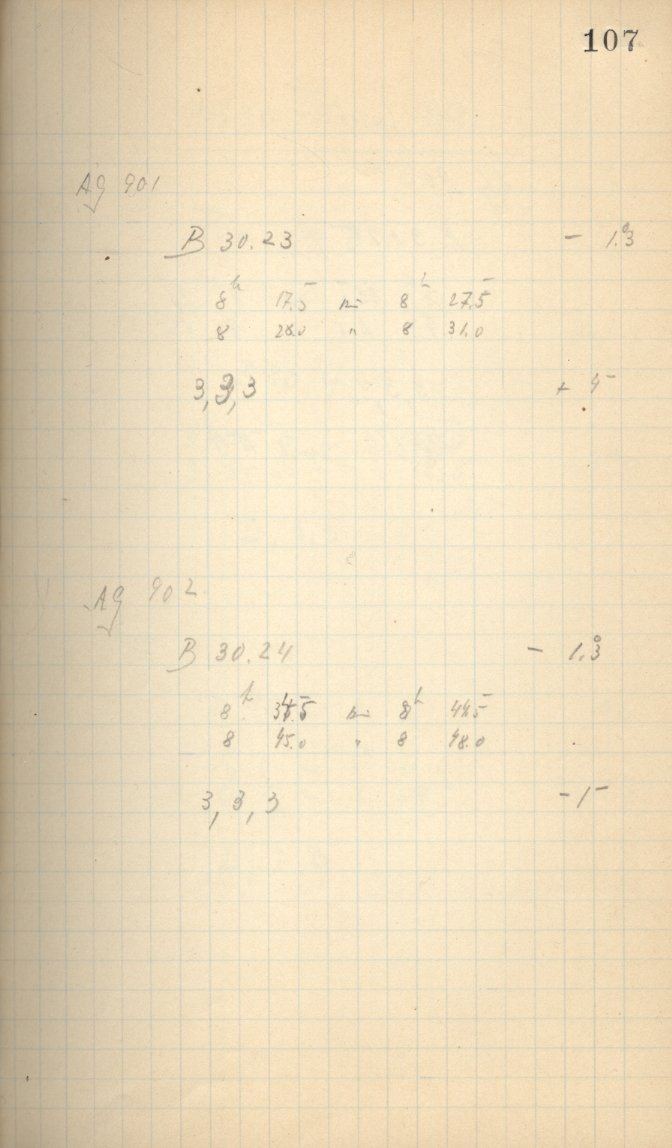 107
Ag 901
B 30.23 - 1.°3
8ʰ 17.5 bis 8ʰ 27.5
8 28.0 " 8 31.0
3, 3, 3 + 5
Ag 902
B 30.24 - 1.°3
8ʰ 34.5 bis 8ʰ 44.5
8 45.0 " 8 48.0
3, 3, 3 - 1